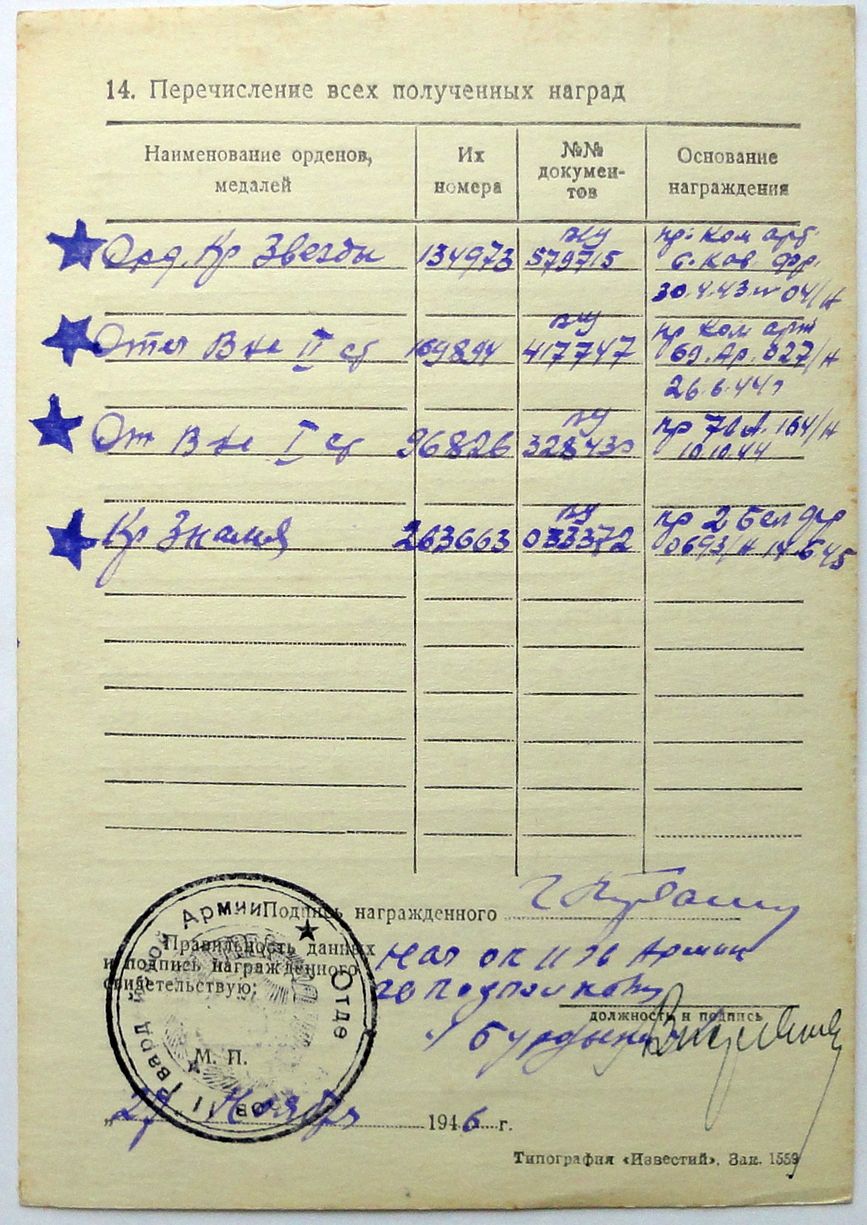 14. Перечисление всех полученных наград
Наименование орденов, медалей
Их номера
№№ документов
Основание награждения
Орд. Кр Звезды 134973 579715 пр. Ком арт.
С. Кав. фр.
30.4.43 № 04/н
Отеч В-не II ст 169894 417747 пр Ком арт
69. Ар. 327/н
26.6.44г
От В-не I ст 96826 328430 пр 70 А. 164/н
10.10.44
Кр Знамя 263663 033372 пр 2 бел фр
0693/н 14.6.45
Подпись награжденного
Правильность данных
и подпись награжденного
свидетельствую:
Нач ок 11 гв Армии
гв подполковн
должность и подпись
М. П.
Гвард Армии Отде
„27 Ноября 1946 г.
Типография «Известий». Зак. 1559